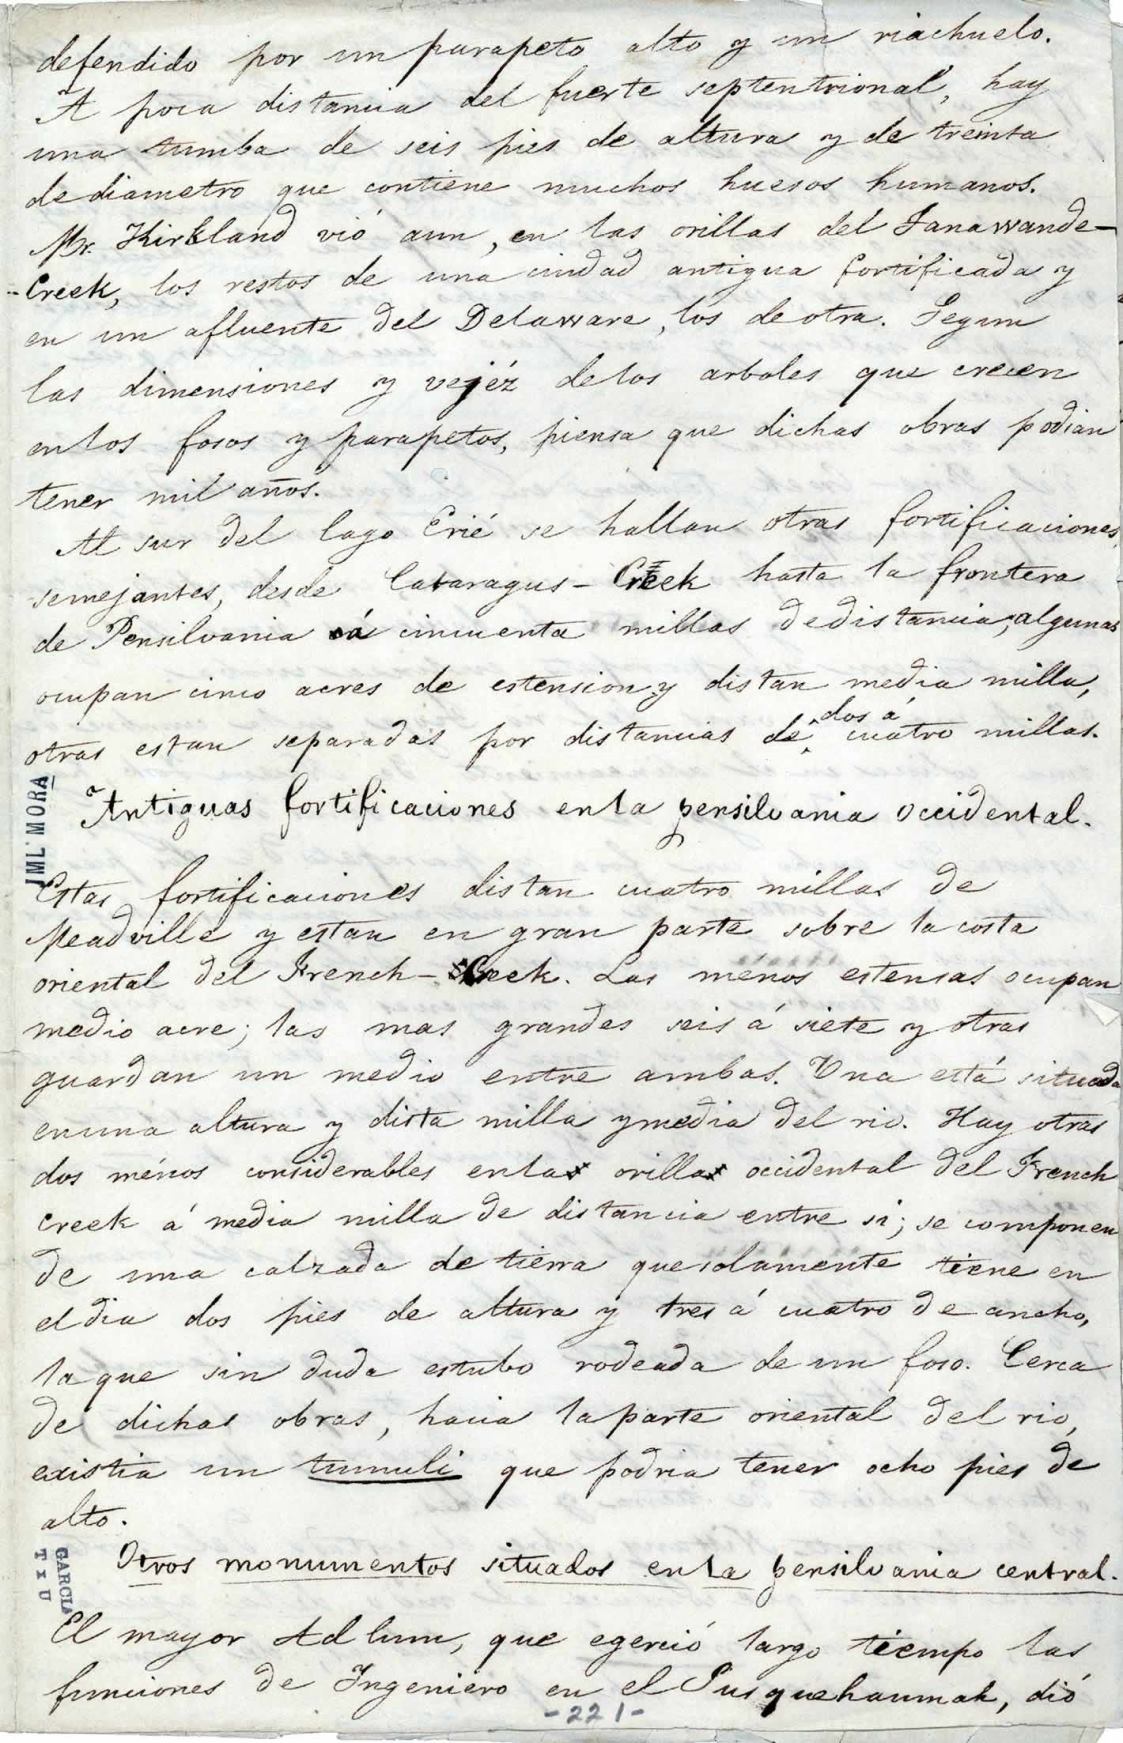 defendido por un parapeto alto y un riachuelo.
A poca distancia del fuerte septentrional, hay
una tumba de seis pies de altura y de treinta
de diametro que contiene muchos huesos humanos.
Mr. Kirkland vió aun, en las orillas del Tanawande-
-Creek, los restos de una ciudad antigua fortificada y
en un afluente del Delaware, los de otra. Segun
las dimensiones y vejéz delos arboles que crecen
enlos fosos y parapetos, piensa que dichas obras podian
tener mil años.
Al sur del lago Erié se hallan otras fortificaciones,
semejantes, desde Cataragus-Creek hasta la frontera
de Pensilvania á cincuenta millas dedistancia; algunas
ocupan cinco acres de estension y distan media milla,
otras estan separadas por distancias de dos á cuatro millas.
Antiguas fortificaciones enla pensilvania occidental.
JML MORA
Estas fortificaciones distan cuatro millas de
Meadville y estan en gran parte sobre la costa
oriental del French-Creek. Las ménos estensas ocupan
medio acre; las mas grandes seis á siete y otras
guardan un medio entre ambas. Una está situada
enuna altura y dista milla ymedia del rio. Hay otras
dos ménos considerables enla orilla occidental del French
creek á media milla de distancia entre si; se componen
de una calzada de tierra quesolamente tiene en
eldia dos pies de altura y tres á cuatro de ancho,
laque sin duda estubo rodeada de un foso. Cerca
de dichas obras, hacia laparte oriental del rio,
existia un tumuli que podria tener ocho pies de
alto.
GARCIA
T x U
Otros monumentos situados enla pensilvania central.
El mayor Adlum, que egerció largo tiempo las
funciones de Ingeniero en el Susquehannah, dió
-221-